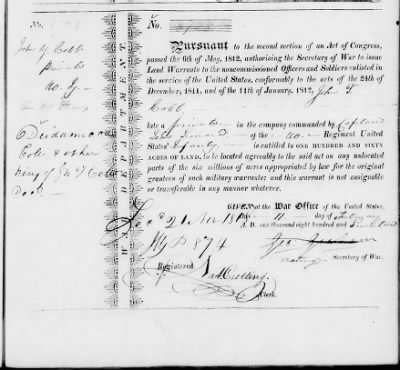 No.
John T Cobb
private
40. Ig
Deidamia
Cobb & other
heirs of Jn. T. Cobb
Decd
WAR DEPARTMENT.
No.
Pursuant to the second section of an Act of Congress,
passed the 6th of May, 1812, authorising the Secretary of War to issue
Land Warrants to the noncommissioned Officers and Soldiers enlisted in
the service of the United States, conformably to the acts of the 24th of
December, 1811, and of the 11th of January, 1812, John T
Cobb
late a private in the company commanded by Captain
of the 40. Regiment United
States' Infantry is entitled to ONE HUNDRED AND SIXTY
ACRES OF LAND, to be located agreeably to the said act on any unlocated
parts of the six millions of acres appropriated by law for the original
grantees of such military warrants; and this warrant is not assignable
or transferable in any manner whatever.
GIVEN at the War Office of the United States,
this 11 day of February
A. D. one thousand eight hundred and
Secretary of War.
acting
Registered
Clerk.